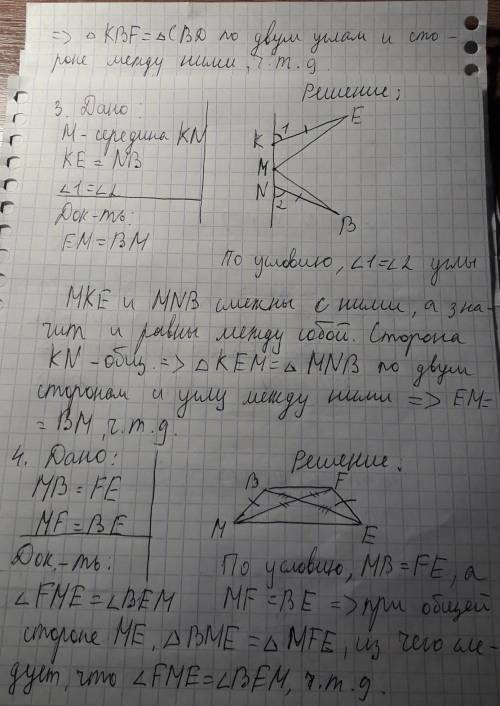 => △KBF=△CBD по двум углам и сто-
роне между ними, ч.т.д.
3. Дано:
M - середина KN
KE = NB
∠1=∠2
Док-ть:
EM=BM
Решение:
K 1 E
M
N 2 B
По условию, ∠1=∠2 углы
MKE и MNB смежны с ними, а зна-
чит и равны между собой. Сторона
KN - общ. => △KEM=△MNB по двум
сторонам и углу между ними => EM=
= BM, ч.т.д.
4. Дано:
MB=FE
MF=BE
Док-ть:
∠FME=∠BEM
Решение.
B F
M E
По условию, MB=FE, а
MF=BE => при общей
стороне ME, △BME=△MFE, из чего сле-
дует, что ∠FME=∠BEM, ч.т.д.